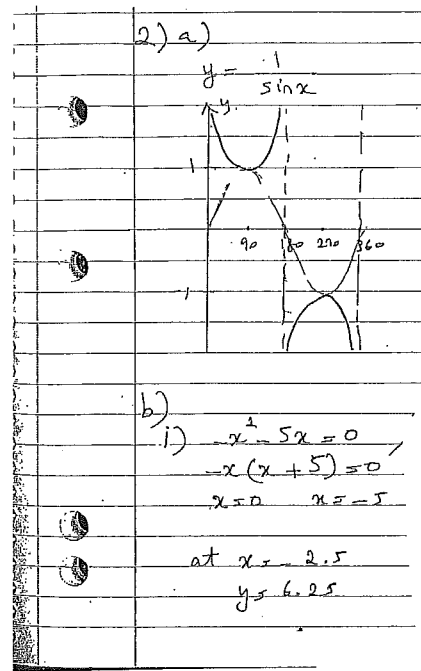 2) a)
y = 1/sinx
y
1
90 180 270 360
-1
b)
i) -x² - 5x = 0
-x(x + 5) = 0
x = 0 x = -5
at x = -2.5
y = 6.25